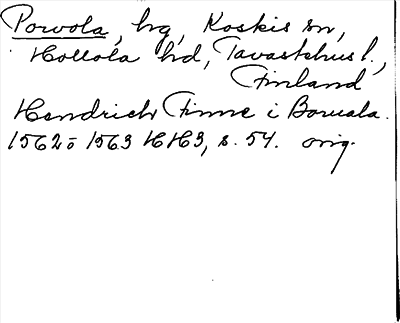 Porvola, hg, Koskis sn,
Hollola hd, Tavastehus l.,
Finland
Hendrich Finne i Boruala.
1562 o 1563 HH3, s. 54. orig.